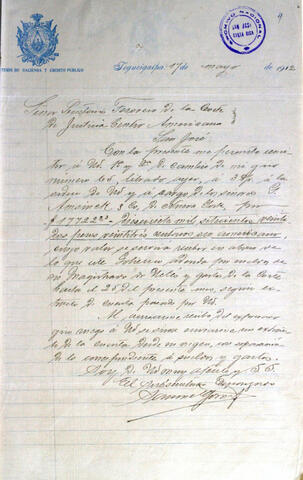 4
MINISTERIO DE HACIENDA Y CRÉDITO PÚBLICO
ARCHIVO NACIONAL
SAN JOSÉ
COSTA RICA
Tegucigalpa, 17 de mayo de 1912
Señor Secretario Tesorero de la Corte
de Justicia Centro Americana
San José.
Con la presente me permito remi-
tir á Ud. 1ª y 2ª de cambio de mi giro
número 63, librado ayer, á 3 d/v, á la
orden de Ud. y á cargo de los señores
Amsinck & Co. de Nueva York por
pesos veintidós centavos oro americano,
cuyo valor se servirá recibir en abono de
lo que este Gobierno adeuda por sueldo de
su Magistrado y gastos de la Corte
hasta el 25 del presente mes, según ex-
tracto de cuenta pasado por Ud.
Al acusarme recibo del expresado
giro ruego á Ud. se sirva enviarme un extracto
de la cuenta desde su origen, con separación
de lo correspondiente á sueldos y gastos.
Soy de Ud. muy atento y S. S.
El Subsecretario